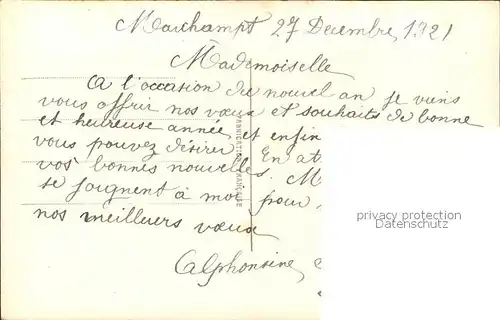 Marchampt 27 Decembre 1921
Mademoiselle
A l'occasion du nouvel an je viens
vous offrir nos vœux et souhaits de bonne
et heureuse année et enfin
vous pouvez désirer. En at
vos bonnes nouvelles. M
se joignent à moi pour
nos meilleurs vœux
Alphonsine
FABRICATION FRANÇAISE
privacy protection
Datenschutz